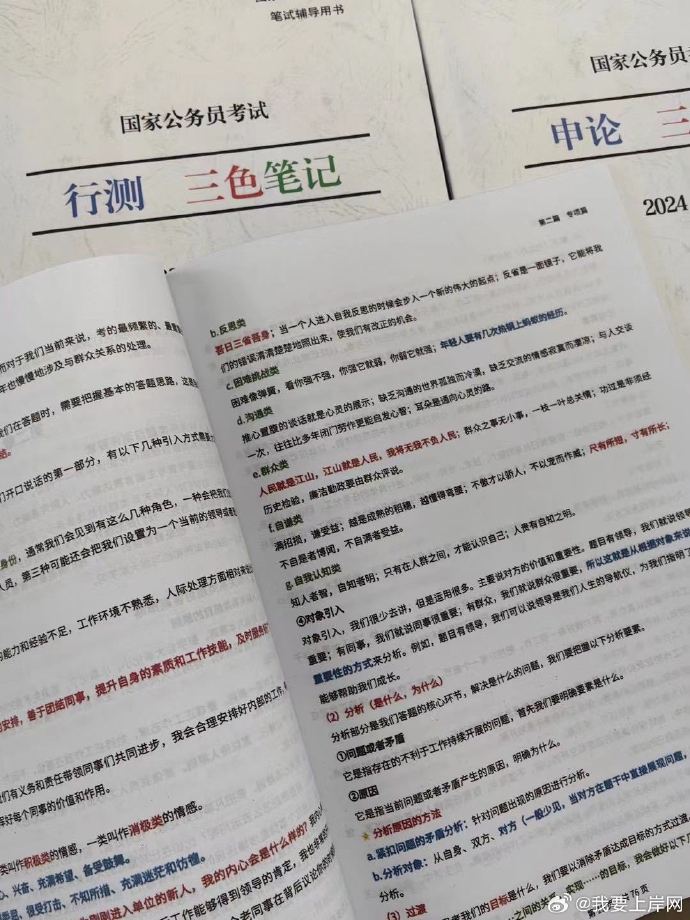 笔试辅导用书
国家公务员考试
行测 三色笔记
国家公务员考
申论 三
2024
第二篇 专项篇
而对于我们当前来说，考的最频繁的、最
年也慢慢地涉及与群众关系的处理。
们在答题时，需要把握基本的答题思路，这
们开口说话的第一部分，有以下几种引入方式需要
身份，通常我们会见到有这么几种角色，一种会把我们
人员，第三种可能还会把我们设置为一个当前的领导或者
的能力和经验不足，工作环境不熟悉，人际处理方面相对来说
安排，善于团结同事，提升自身的素质和工作技能，及时
们有义务和责任带领同事们共同进步，我会合理安排好内部的工作，
挥好每个同事的价值和作用。
类叫作积极类的情感，一类叫作消极类的情感。
心、兴奋、充满希望、备受鼓舞。
很受打击、不知所措、充满迷茫和彷徨。
刚刚进入单位的新人，我的内心会是什么样的？
工作能够得到领导的肯定，我
个老同事在背后议论
b.反思类
吾日三省吾身；当一个人进入自我反思的时候会步入一个新的伟大的起点；反省是一面镜子，它能将我
们的错误清清楚楚地照出来，使我们有改正的机会。
c.困难挑战类
困难像弹簧，看你强不强，你强它就弱，你弱它就强；年轻人要有几次热锅上蚂蚁的经历。
d.沟通类
推心置腹的谈话就是心灵的展示；缺乏沟通的世界孤独而冷漠，缺乏交流的情感寂寞而凄凉；与人交谈
一次，往往比多年闭门劳作更能启发心智；耳朵是通向心灵的路。
e.群众类
人民就是江山，江山就是人民，我将无我不负人民；群众之事无小事，一枝一叶总关情；功过是非须经
历史检验，廉洁勤政要由群众评说。
f.自谦类
满招损，谦受益；越是成熟的稻穗，越懂得弯腰；不傲才以骄人，不以宠而作威；尺有所短，寸有所长；
不自是者博闻，不自满者受益。
g.自我认知类
知人者智，自知者明；只有在人群之间，才能认识自己；人贵有自知之明。
④对象引入
对象引入，我们很少去讲，但是运用很多。主要说对方的价值和重要性。题目有领导，我们就说领导
重要；有同事，我们就说同事很重要；有群众，我们就说群众很重要，所以这就是从根据对象来说
重要性的方式来分析。例如，题目有领导，我们可以说领导是我们人生的导航仪，为我们指明了
能够帮助我们成长。
（2）分析（是什么，为什么）
分析部分是我们答题的核心环节，解决是什么的问题，我们要把握以下分析要素。
①问题或者矛盾
它是指存在的不利于工作持续开展的问题，首先我们要明确要素是什么。
②原因
它是指当前问题或者矛盾产生的原因，明确为什么。
分析原因的方法
a.紧扣问题的矛盾分析：针对问题出现的原因进行分析。
b.分析对象：从自身、双方、对方（一般少见，当对方在题干中直接展现问题，
分析。
（3）过渡
我们的目标是什么，我们要以消除矛盾达成目标的方式过渡
之间的关系，实现……的目标，我会做好以下几
76页
@我要上岸网